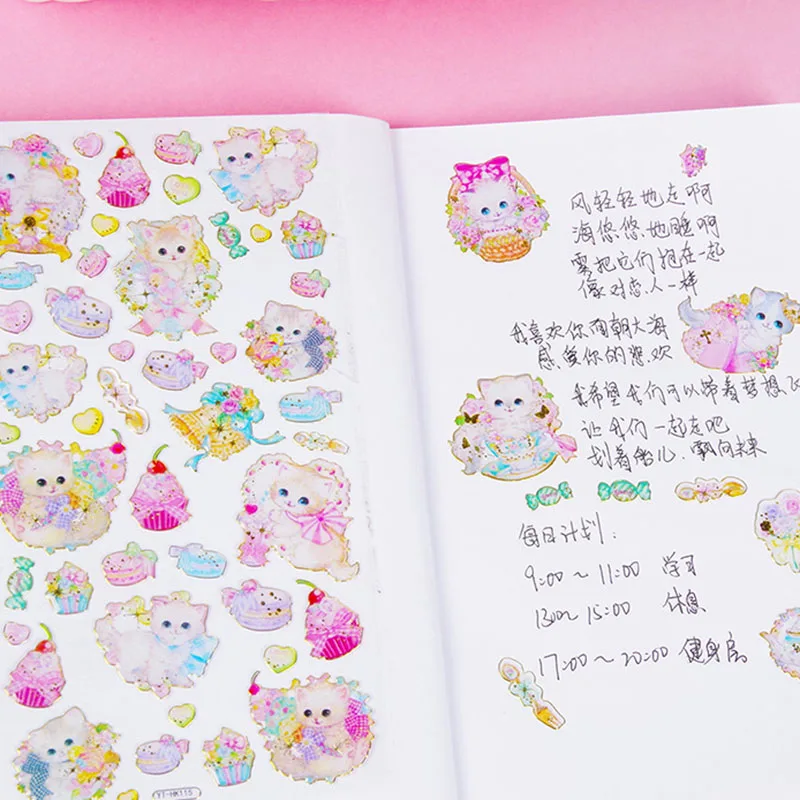 风轻轻地走啊
海悠悠地睡啊
雾把它们拥在一起
像对恋人一样
我喜欢你面朝大海
感受你的悲欢
我希望我们可以带着梦想飞
让我们一起走吧
划着船儿、飘向未来
每日计划：
9:00～11:00 学习
1300～15:00 休息
17:00～20:00 健身房
YT-HK115